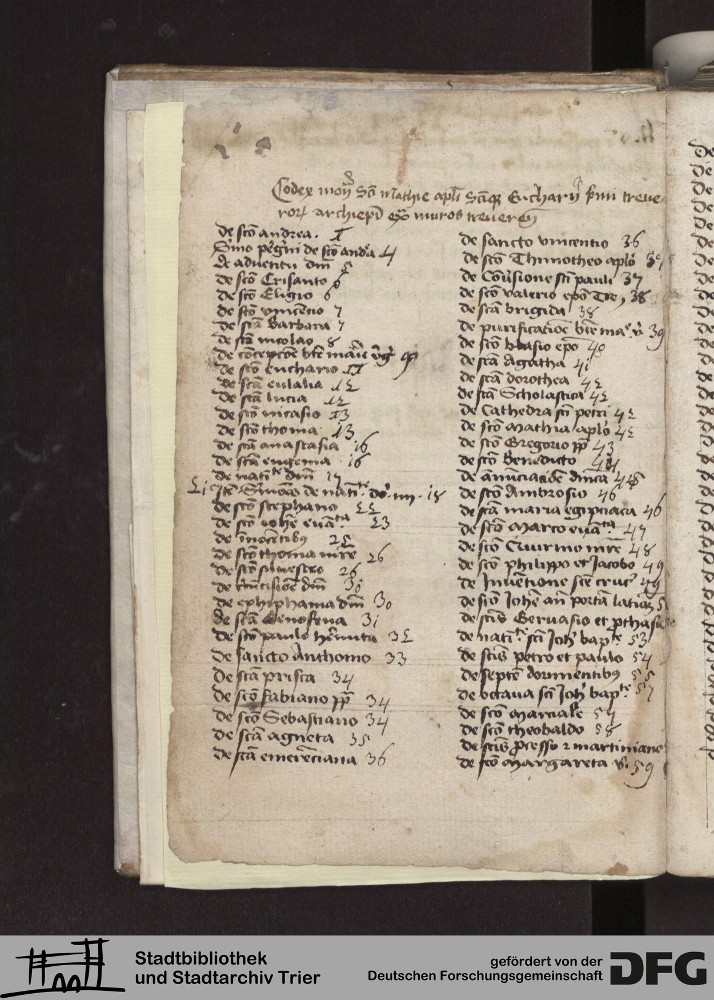 Codex moñ Sci Mathie apli Sciq Eucharij primi treve
ror archiepi extra muros treveren
de sco andrea. I
de adventu dni 5
de sco Crisanto 6
de sco Eligio 6
de sco vincetio 7
de sca Barbara 7
de sco nicolao 8
de coceptoe bte marie vg 9
de sco euchario II
de sca eulalia 12
de sca lucia 12
de sco nicasio 13
de sco thoma 13
de sca anastasia 16
de sca eugenia 16
de nati dni 17
de sco stephano 22
de sco iohe evata 23
de inocetibus 25
de sco thoma mre 26
de sco silvestro 26
de circucisioe dni 30
de ephiphania dni 30
de sca Genofeva 31
de sco paulo hemita 32
de sancto Anthonio 33
de sca prisca 34
de sco fabiano pp 34
de sco Sebastiano 34
de sca agneta 35
de sca emerenciana 36
de sancto vincentio 36
de sco Thimotheo aplo
de Coversione sci pauli 37
de sco valerio epo Tre, 38
de sca brigida 38
de purificatioe bte ma v 39
de sco blasio epo 40
de sca Agatha 41
de sca dorothea 42
de sca Scholastica 42
de Cathedra sci petri 42
de sco Mathia aplo 42
de sco Gregorio pp 43
de sco benedicto 44
de anuciatioe dnica 45
de sco Ambrosio 46
de sca maria egipciaca 46
de sco Marco evata 47
de sco Quirino mre 48
de sco philippo et Jacobo 49
de Invetione sce cruc 49
de sco Johe an porta latina
de scis Gervasio et pthasio
de nati sci Joh bapte 53
de scis petro et paulo 54
de septe dormientibus 55
de octava sci Joh bapte 57
de sco Marciale 57
de sco theobaldo 58
de scis pcesso 2 martiniano
de sca Margareta v. 59
Stadtbibliothek
und Stadtarchiv Trier
gefördert von der
Deutschen Forschungsgemeinschaft
DFG